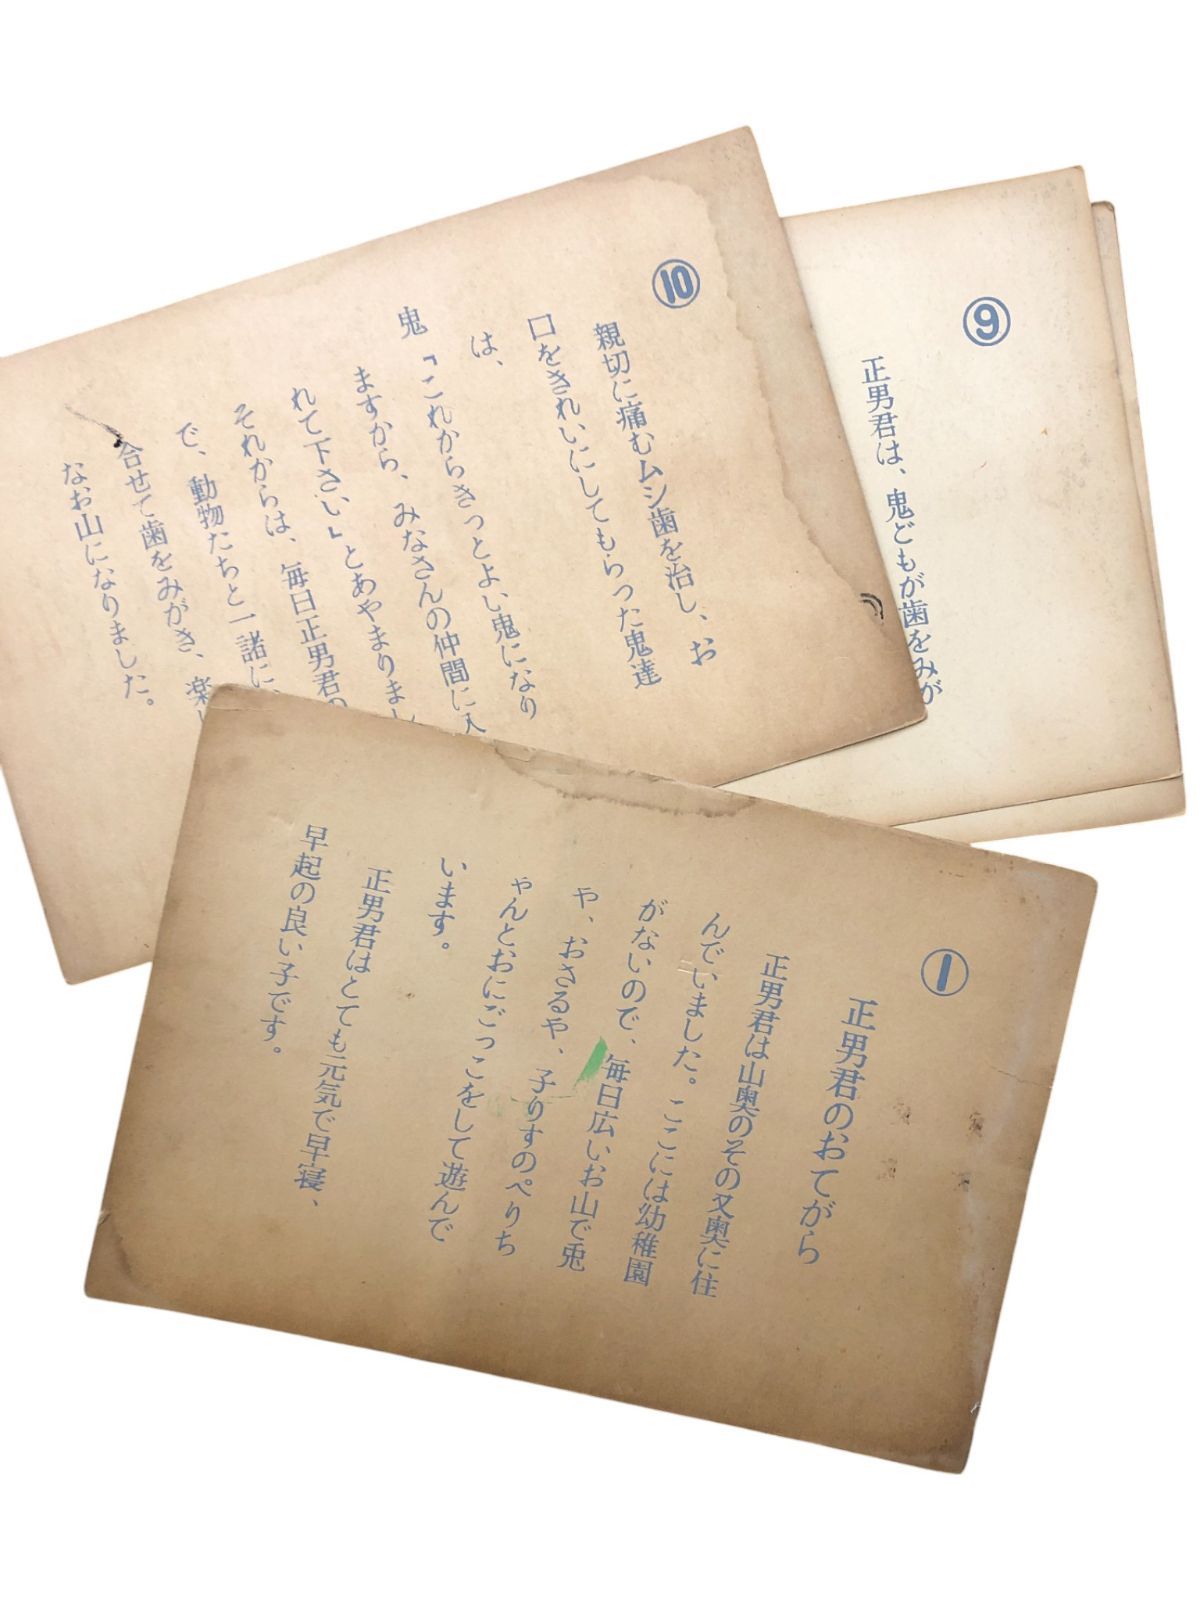 ⑩
親切に痛むムシ歯を治し、お
口をきれいにしてもらった鬼達
は、
鬼「これからきっとよい鬼になり
ますから、みなさんの仲間に入
れて下さい」とあやまりまし
それからは、毎日正男君の
で、動物たちと一諸に、
合せて歯をみがき、楽し
なお山になりました。
⑨
正男君は、鬼どもが歯をみが
①
正男君のおてがら
正男君は山奥のその又奥に住
んでいました。ここには幼稚園
がないので、毎日広いお山で兎
や、おさるや、子りすのぺりち
ゃんとおにごっこをして遊んで
います。
正男君はとても元気で早寝、
早起の良い子です。